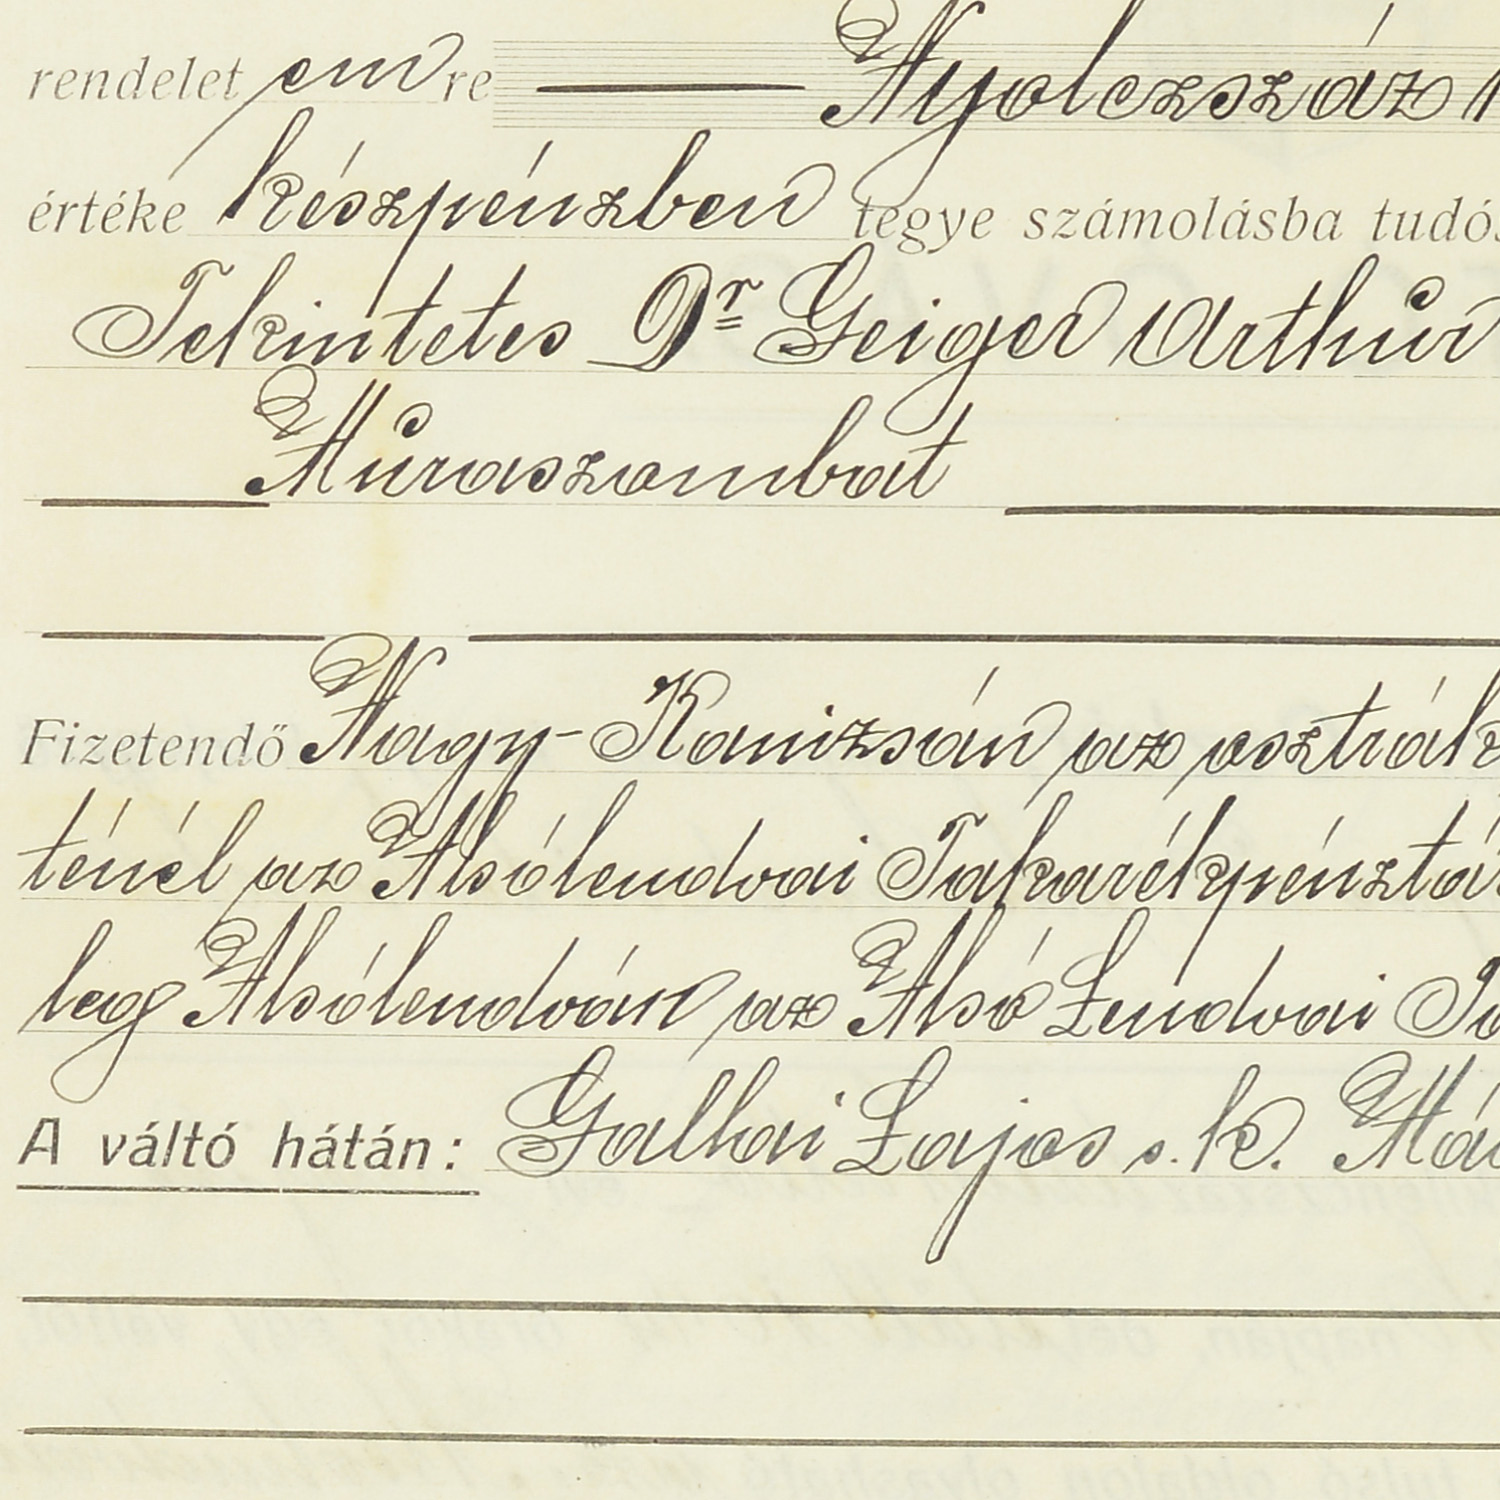 rendelet emre Nyolczszáz
értéke készpénzben tegye számolásba tudós
Tekintetes Dr Geiger Arthur
Muraszombat
Fizetendő Nagy-Kanizsán az osztrák
ténél az Alsólendvai Takarékpénztár
leg Alsólendván az Alsó Lendvai Ta
A váltó hátán: Galhai Lajos s. k. Má